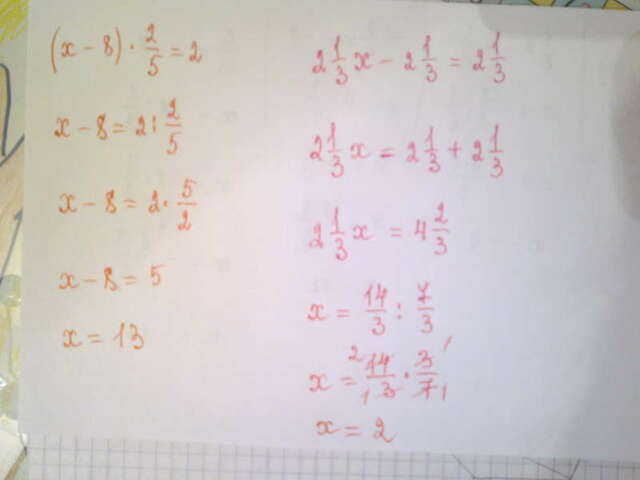 (x - 8) · 2/5 = 2
x - 8 = 2 : 2/5
x - 8 = 2 · 5/2
x - 8 = 5
x = 13
2 1/3 x - 2 1/3 = 2 1/3
2 1/3 x = 2 1/3 + 2 1/3
2 1/3 x = 4 2/3
x = 14/3 : 7/3
x = 2 14/3 1 · 3/7 1 1
x = 2